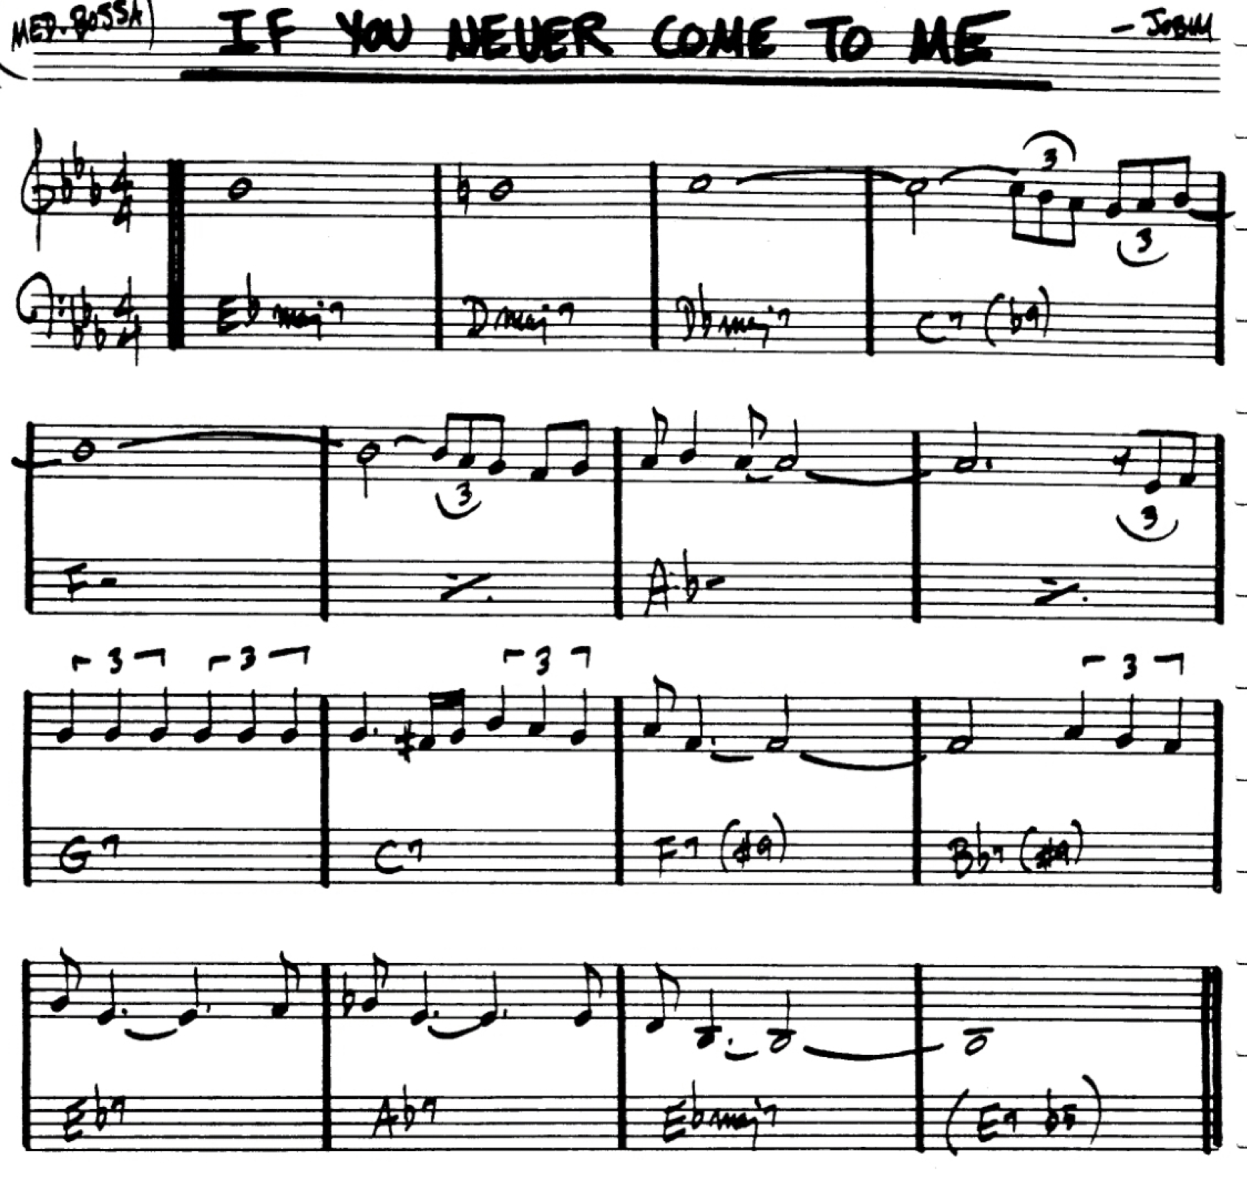 MED. BOSSA) IF YOU NEVER COME TO ME - JOBIM
4 4 3 3
4 4 Ebmaj7 Dmaj7 Dbmaj7 C7 (b9)
3 3
F- Ab-
3 3 3 3
G7 C7 F7 (#9) Bb7 (#9)
Eb7 Ab7 Ebmaj7 (E7 b5)